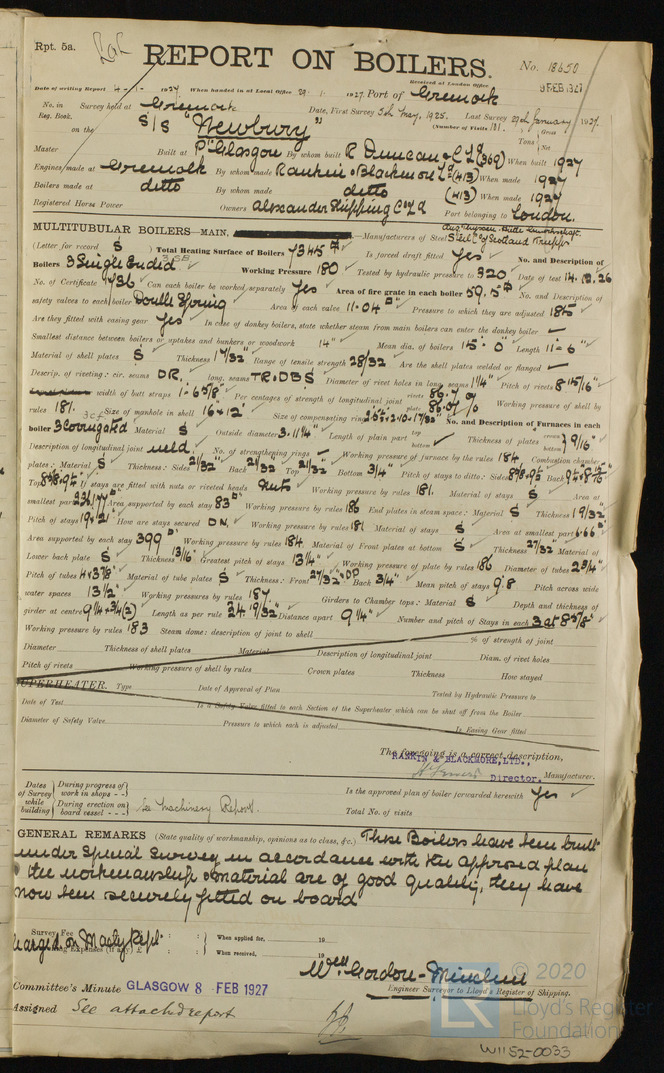 Rpt. 5a.
REPORT ON BOILERS.
No. 18650
Received at London Office
9 FEB 1927
Date of writing Report 4-1-1927 When handed in at Local Office 29.1.1927. Port of Greenock
No. in Survey held at Greenock Date, First Survey 5th May, 1925. Last Survey 29th January 1927.
Reg. Book. (Number of Visits 181.)
on the S/S "Newbury" Tons { Gross Net
Master Built at Pt Glasgow By whom built R Duncan & Co Ld (369) When built 1927
Engines made at Greenock By whom made Rankin & Blackmore Ld (413) When made 1927
Boilers made at ditto By whom made ditto (413) When made 1927
Registered Horse Power Owners Alexander Shipping Co Ld Port belonging to London.
MULTITUBULAR BOILERS—MAIN, Manufacturers of Steel Steel Co of Scotland Krupp
(Letter for record S ) Total Heating Surface of Boilers 7345 Is forced draft fitted Yes No. and Description of
Boilers 3 Single Ended 3 SB Working Pressure 180 Tested by hydraulic pressure to 320 Date of test 14.12.26
No. of Certificate 1736 Can each boiler be worked separately Yes Area of fire grate in each boiler 59.5 No. and Description of
safety valves to each boiler Double Spring Area of each valve 11.04 Pressure to which they are adjusted 185
Are they fitted with easing gear Yes In case of donkey boilers, state whether steam from main boilers can enter the donkey boiler
Smallest distance between boilers or uptakes and bunkers or woodwork 14" Mean dia. of boilers 15'-0" Length 11'-6"
Material of shell plates S Thickness 1 7/32" Range of tensile strength 28/32 Are the shell plates welded or flanged
Descrip. of riveting: cir. seams DR. long. seams TR.DBS Diameter of rivet holes in long. seams 1 1/4" Pitch of rivets 8 15/16"
width of butt straps 1'-6 5/8" Per centages of strength of longitudinal joint rivets 86.7% plate 86.07% Working pressure of shell by
rules 181. Size of manhole in shell 16 x 12" Size of compensating ring No. and Description of Furnaces in each
boiler 3 Corrugated Material S Outside diameter 3'-11 1/4" Length of plain part top bottom Thickness of plates crown bottom } 9/16"
Description of longitudinal joint weld. No. of strengthening rings Working pressure of furnace by the rules 184 Combustion chamber
plates: Material S Thickness: Sides 21/32" Back 21/32" Top 21/32" Bottom 3/4" Pitch of stays to ditto: Sides
Top If stays are fitted with nuts or riveted heads Nuts Working pressure by rules 181. Material of stays S Area at
smallest part Area supported by each stay 83 Working pressure by rules 186 End plates in steam space: Material S Thickness 1 9/32"
Pitch of stays 19 x 21" How are stays secured D.N. Working pressure by rules 181 Material of stays S Area at smallest part 6.66
Area supported by each stay 399 Working pressure by rules 184 Material of Front plates at bottom S Thickness 27/32" Material of
Lower back plate S Thickness 13/16" Greatest pitch of stays 13 1/4" Working pressure of plate by rules 186 Diameter of tubes 2 3/4"
Pitch of tubes 4 x 3 7/8" Material of tube plates S Thickness: Front 27/32" DP Back 3/4" Mean pitch of stays 9.8 Pitch across wide
water spaces 13 1/2" Working pressures by rules 187. Girders to Chamber tops: Material S Depth and thickness of
girder at centre 9 1/4 x 3/4 (2) Length as per rule 24.19/32" Distance apart 9 1/4" Number and pitch of Stays in each 3 at 8 5/8"
Working pressure by rules 183 Steam dome: description of joint to shell % of strength of joint
Diameter Thickness of shell plates Material Description of longitudinal joint Diam. of rivet holes
Pitch of rivets Working pressure of shell by rules Crown plates Thickness How stayed
SUPERHEATER. Type Date of Approval of Plan Tested by Hydraulic Pressure to
Date of Test Is a Safety Valve fitted to each Section of the Superheater which can be shut off from the Boiler
Diameter of Safety Valve Pressure to which each is adjusted Is Easing Gear fitted
The foregoing is a correct description,
RANKIN & BLACKMORE, LTD.,
Director. Manufacturer.
Dates of Survey while building { During progress of work in shops - - } { During erection on board vessel - - - } See Machinery Report.
Is the approved plan of boiler forwarded herewith Yes
Total No. of visits
GENERAL REMARKS (State quality of workmanship, opinions as to class, &c.) These Boilers have been built
under Special Survey in accordance with the approved plan
the workmanship & material are of good quality, they have
now been securely fitted on board
Survey Fee
Charged on Machy Rept.
Travelling Expenses (if any) £ : :
When applied for, 19
When received, 19
Wm Gordon-Minchin
Engineer Surveyor to Lloyd's Register of Shipping.
Committee's Minute GLASGOW 8 FEB 1927
Assigned See attached report
© 2020
Lloyd's Register
Foundation
W1152-0033